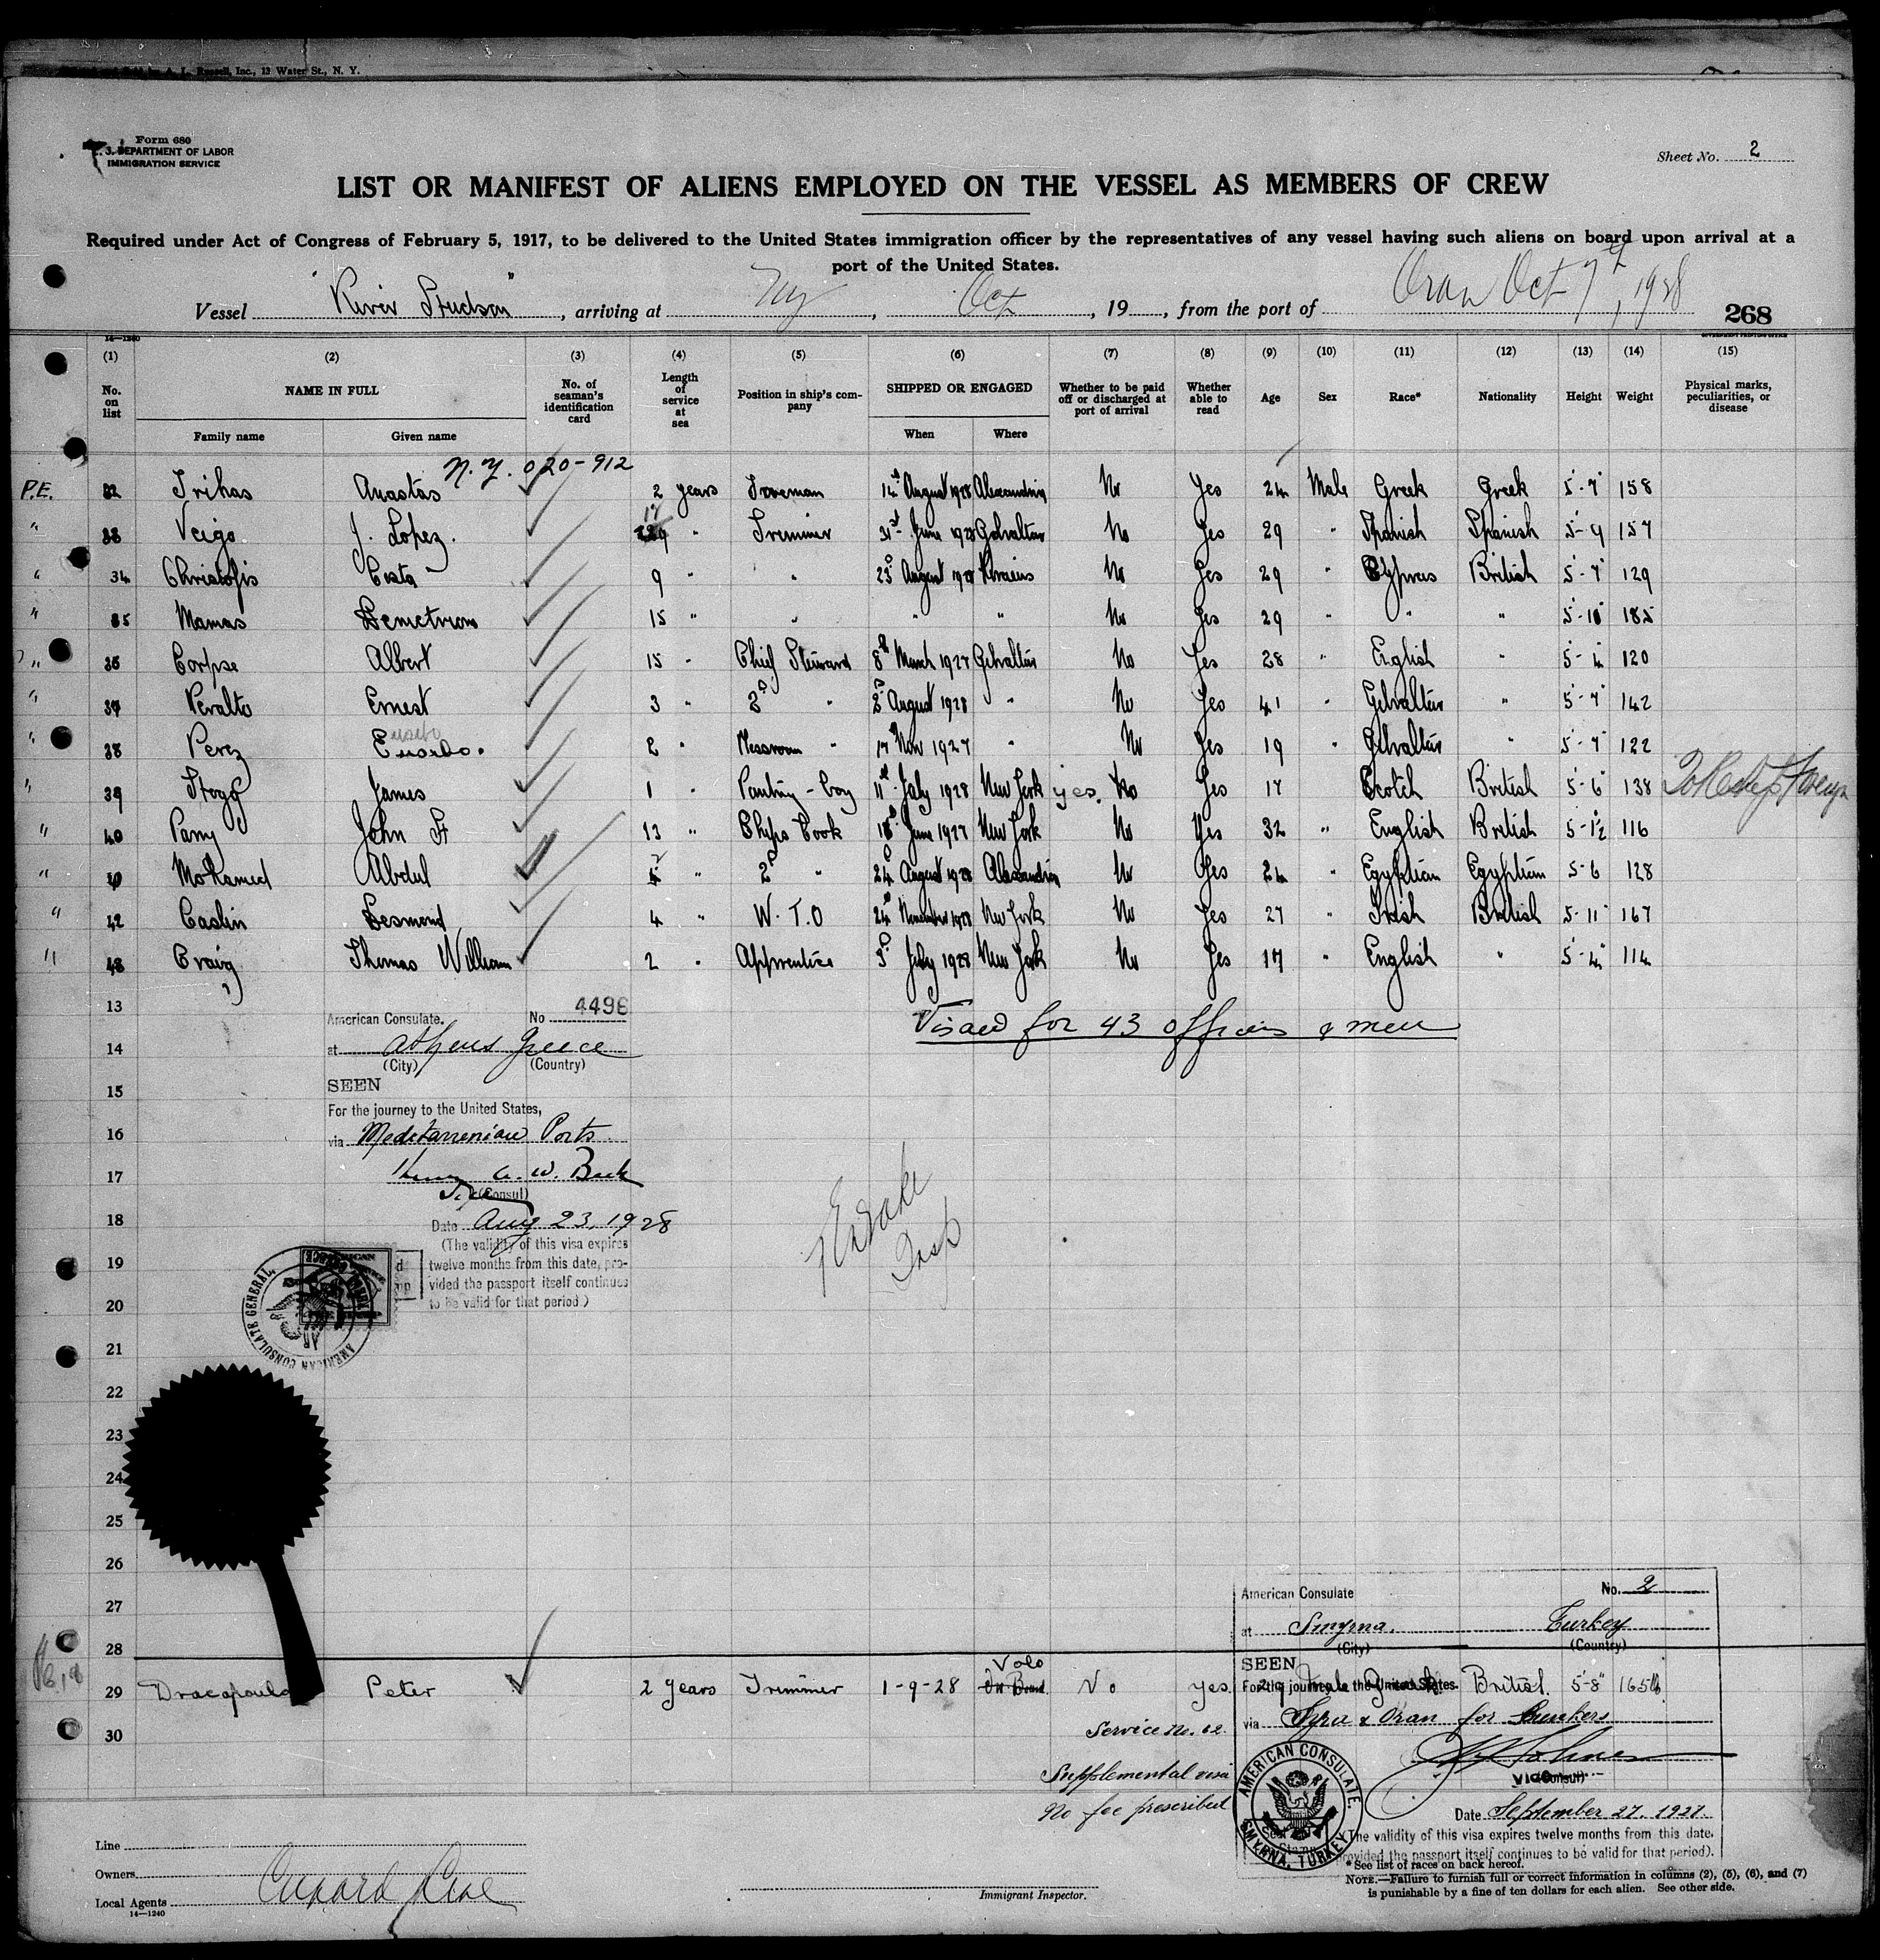 A. L. Russell, Inc., 13 Water St., N. Y.
Form 680
DEPARTMENT OF LABOR
IMMIGRATION SERVICE
Sheet No. 2
LIST OR MANIFEST OF ALIENS EMPLOYED ON THE VESSEL AS MEMBERS OF CREW
Required under Act of Congress of February 5, 1917, to be delivered to the United States immigration officer by the representatives of any vessel having such aliens on board upon arrival at a
port of the United States.
Vessel "River Hudson", arriving at Ny, Oct, 19, from the port of Oran Oct 7th, 1928
268
14—1240
GOVERNMENT PRINTING OFFICE
(1) (2) (3) (4) (5) (6) (7) (8) (9) (10) (11) (12) (13) (14) (15)
No. on list NAME IN FULL No. of seaman's identification card Length of service at sea Position in ship's company SHIPPED OR ENGAGED Whether to be paid off or discharged at port of arrival Whether able to read Age Sex Race* Nationality Height Weight Physical marks, peculiarities, or disease
Family name Given name When Where
N.Y. 020-912
P.E. 32 Trihas Anastas 2 years Foreman 14th August 1928 Alexandria No Yes 24 Male Greek Greek 5-7 158
" 33 Veiga J. Lopez. 17 " Trimmer 31st June 1928 Gibraltar No Yes 29 " Spanish Spanish 5-9 157
" 34 Christofis Costa 9 " " 23d August 1928 Piraeus No Yes 29 " Cyprus British 5-7 129
" 35 Mamas Demetriou 15 " " " " No Yes 29 " " " 5-10 185
" 36 Corpse Albert 15 " Chief Steward 8th March 1927 Gibraltar No Yes 28 " English " 5-4 120
" 37 Peralto Ernest 3 " 2d " 2d August 1928 " No Yes 41 " Gibraltar " 5-7 142
" 38 Perez Eusebo. 2 " Messroom " 17th Nov 1927 " No Yes 19 " Gibraltar " 5-7 122
" 39 Hogg James 1 " Pantry-boy 11th July 1928 New York yes. No Yes 17 Scotch British 5-6 138
" 40 Parry John H 13 " Ships Cook 18th June 1927 New York No Yes 32 " English British 5-1½ 116
" Mohamed Abdul 2 " 2d " 24th August 1928 Alexandria No Yes 24 " Egyptian Egyptian 5-6 128
" 42 Caslin Desmond 4 " W.T.O 24th November 1928 New York No Yes 27 " Irish British 5-11 167
" 43 Craig Thomas William 2 " Apprentice 3d July 1928 New York No Yes 17 " English " 5-4 114
13
American Consulate. No 4496
Visaed for 43 officers & men
14
at Athens Greece
(City) (Country)
15
SEEN
For the journey to the United States,
16
via Medetarrenian Ports
17
A. W. Beck
(Consul)
18
Date Aug 23, 1928
(The validity of this visa expires
19
twelve months from this date, pro-
vided the passport itself continues
20
to be valid for that period)
AMERICAN CONSULATE GENERAL,
21
22
23
24
25
26
American Consulate No. 2
27
at Smyrna. Turkey
(City) (Country)
28
SEEN
29 Dracopoulo Peter 2 years Trimmer 1-9-28 Volo On Board No yes. 29 Male Greek British. 5-8" 165
For the journey to the United States.
30
Service No. 62.
via Syra & Oran for Bunkers
Supplemental visa
No fee prescribed
Vice (Consul)
Date September 27, 1927
AMERICAN CONSULATE. SMYRNA, TURKEY
(The validity of this visa expires twelve months from this date,
provided the passport itself continues to be valid for that period).
Line
Owners
Local Agents Cunard Line
14—1240
Immigrant Inspector.
* See list of races on back hereof.
NOTE.—Failure to furnish full or correct information in columns (2), (5), (6), and (7)
is punishable by a fine of ten dollars for each alien. See other side.